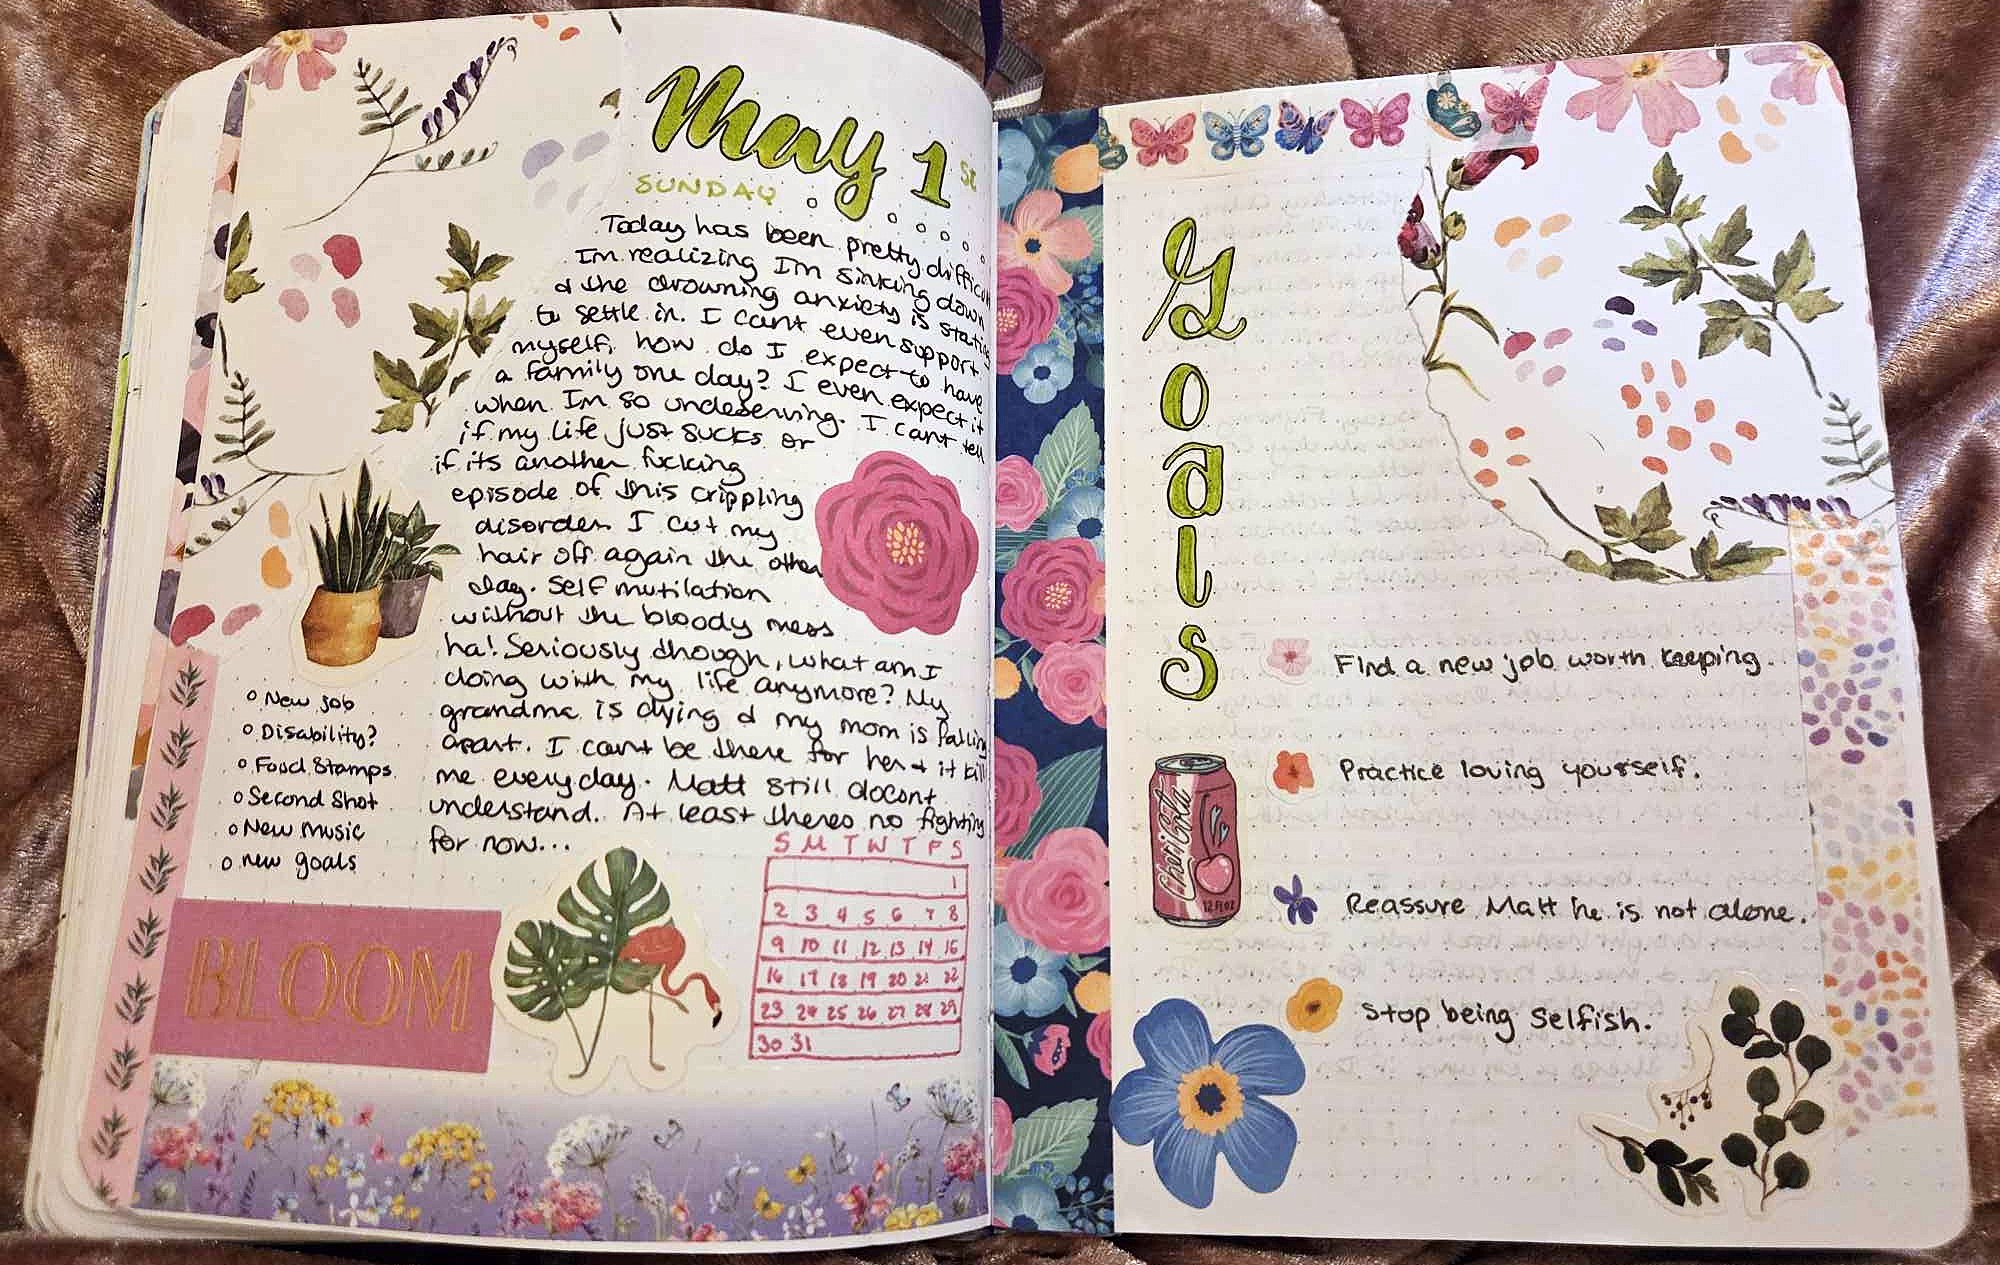 May 1st
SUNDAY
Today has been pretty difficult
Im realizing Im sinking down
& the drowning anxiety is
to settle in. I cant even support
myself, how do I expect to have
a family one day? I even expect it
when Im so undeserving. I cant tell
if my life just sucks or
if its another fucking
episode of this crippling
disorder. I cut my
hair off again the other
day. Self mutilation
without the bloody mess
ha! Seriously though, what am I
doing with my life anymore? My
grandma is dying & my mom is falling
apart. I cant be there for her & it
me everyday. Matt still
understand. At least theres no fighting
for now...
o New job
o Disability?
o Food Stamps
o Second Shot
o New Music
o new goals
BLOOM
S M T W T F S
1
2 3 4 5 6 7 8
9 10 11 12 13 14 15
16 17 18 19 20 21 22
23 24 25 26 27 28 29
30 31
Goals
Find a new job worth keeping.
Practice loving yourself.
Reassure Matt he is not alone.
Stop being selfish.
12 Fl oz